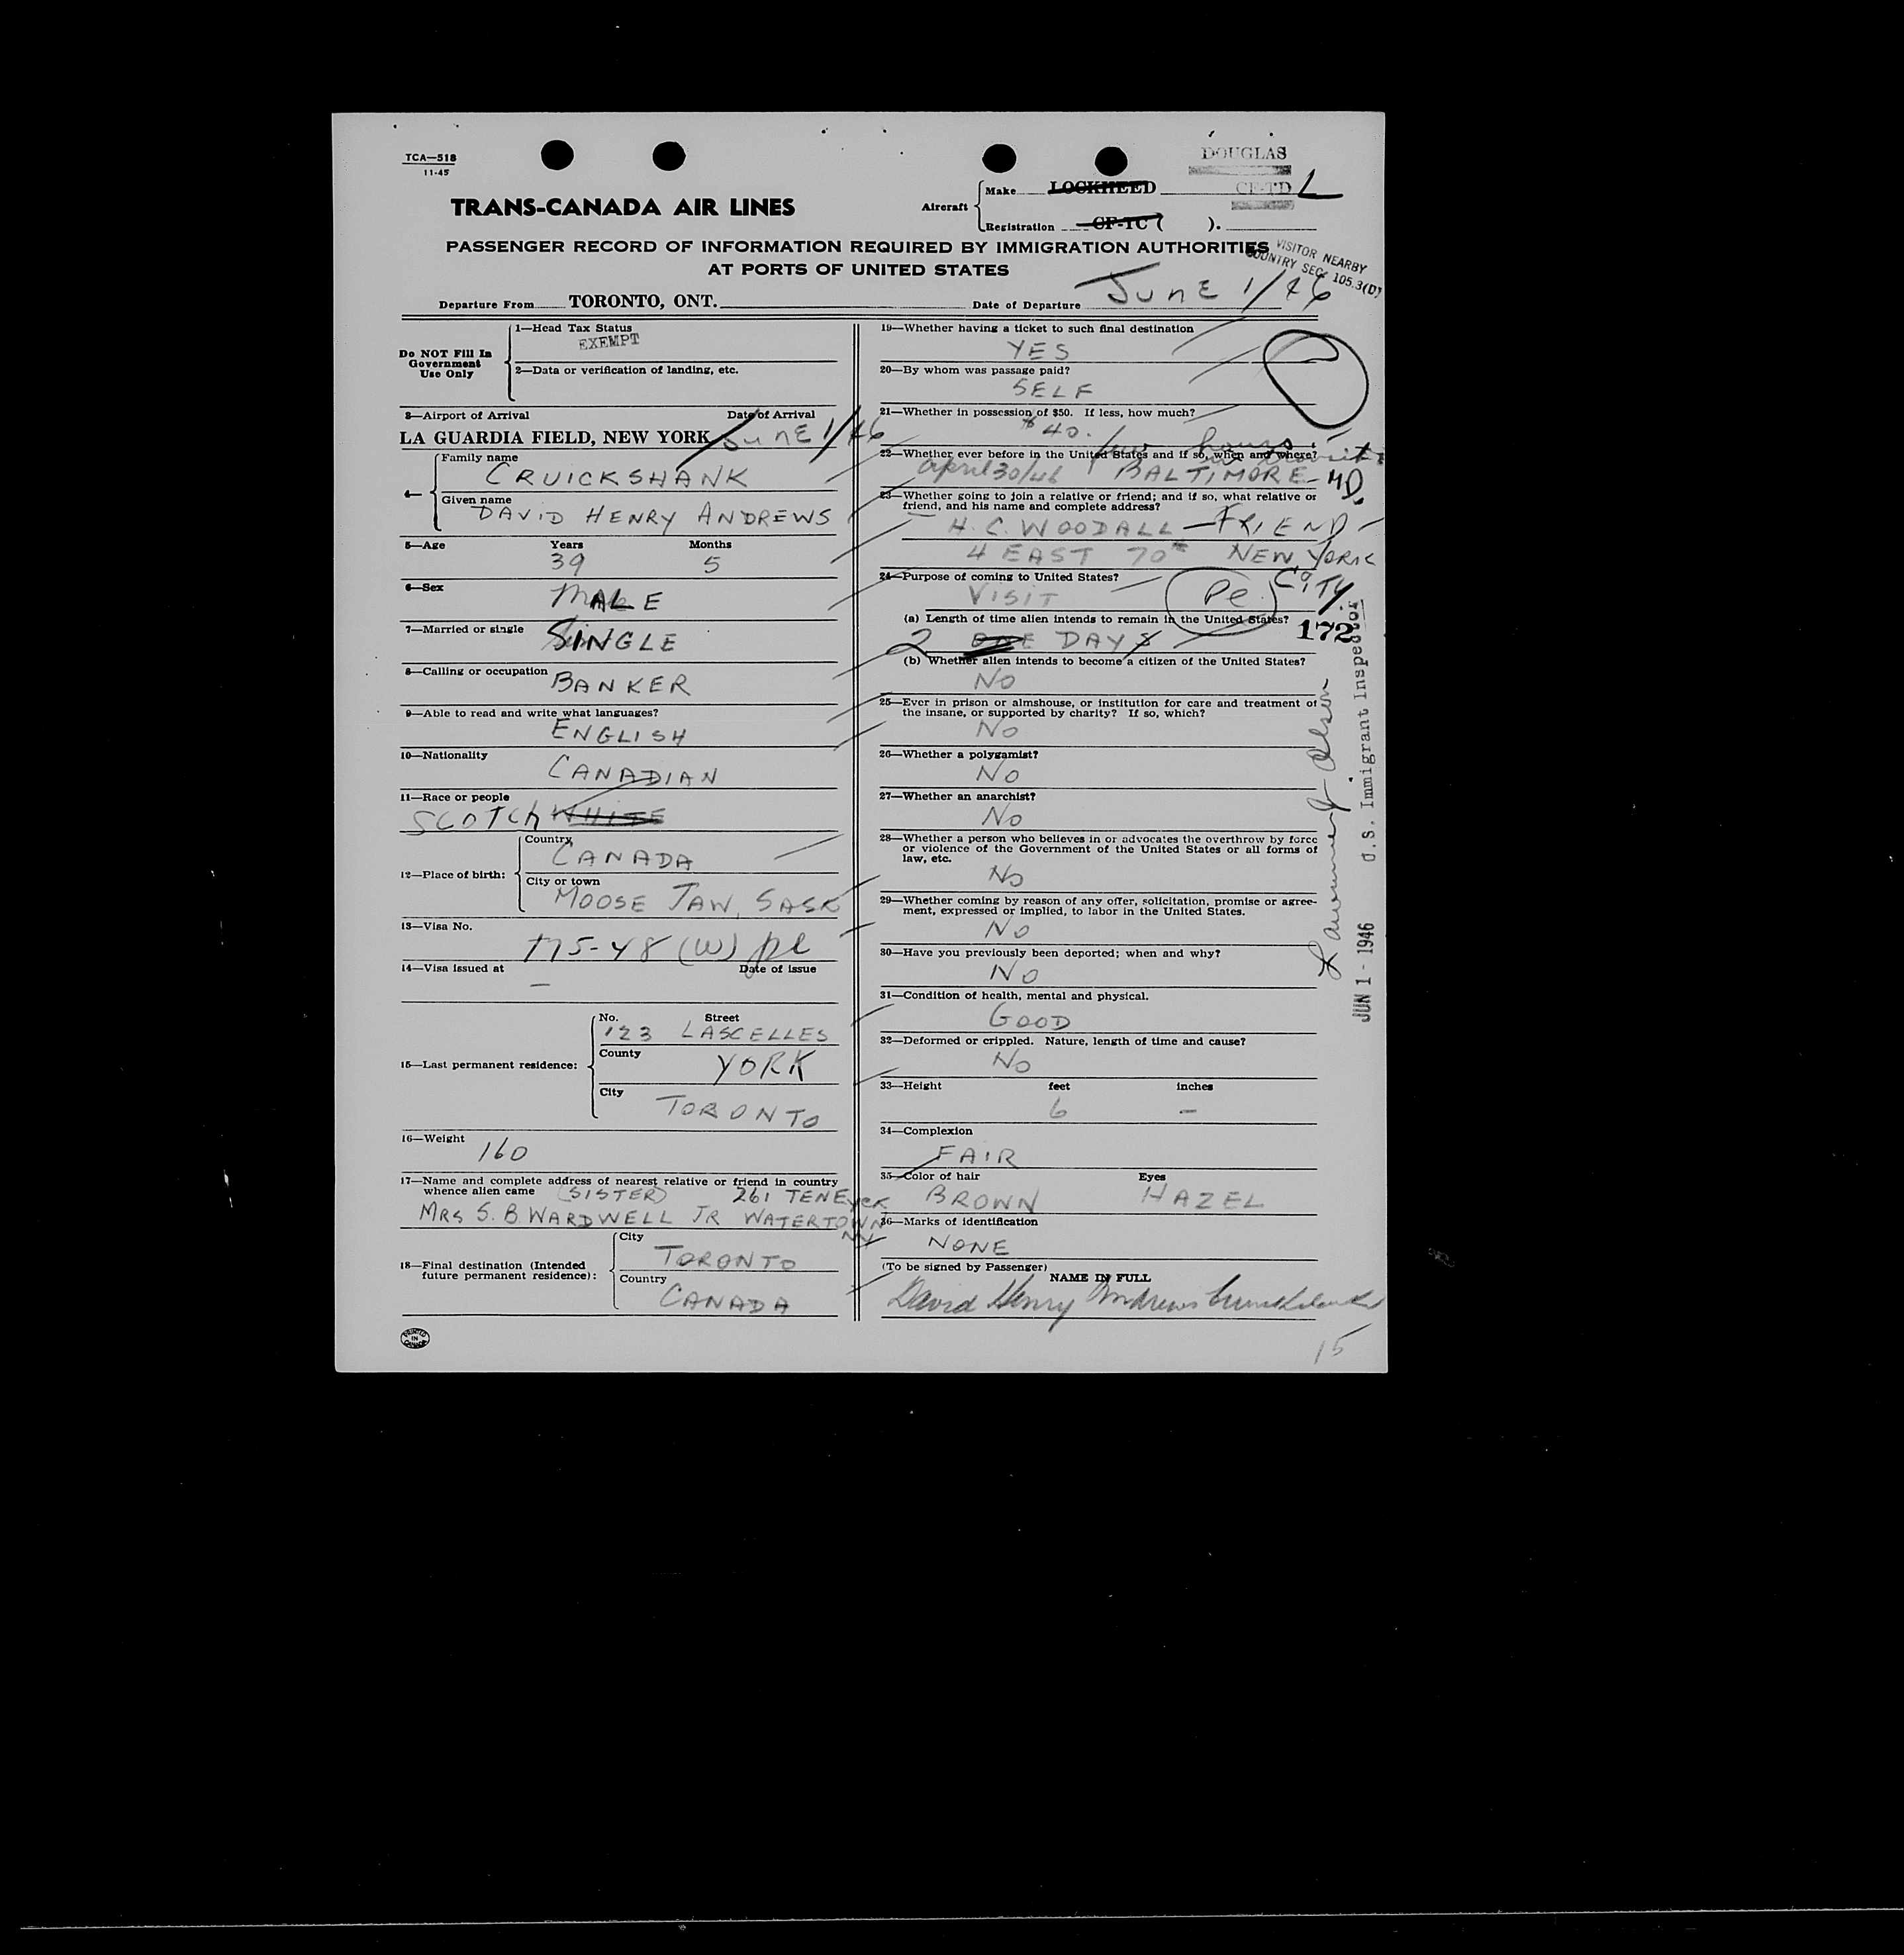 TCA—518
11-45
DOUGLAS
TRANS-CANADA AIR LINES
Aircraft
Make LOCKHEED
CF-TD L
Registration CF-TC ( ).
PASSENGER RECORD OF INFORMATION REQUIRED BY IMMIGRATION AUTHORITIES
AT PORTS OF UNITED STATES
VISITOR NEARBY
COUNTRY SEC. 105.3(D)
Departure From TORONTO, ONT. Date of Departure JUNE 1/46
Do NOT Fill In
Government
Use Only
1—Head Tax Status
EXEMPT
2—Data or verification of landing, etc.
3—Airport of Arrival Date of Arrival
LA GUARDIA FIELD, NEW YORK JUNE 1/46
4—
Family name
CRUICKSHANK
Given name
DAVID HENRY ANDREWS
5—Age Years Months
39 5
6—Sex MALE
7—Married or single SINGLE
8—Calling or occupation BANKER
9—Able to read and write what languages?
ENGLISH
10—Nationality
CANADIAN
11—Race or people
SCOTCH WHITE
12—Place of birth:
Country
CANADA
City or town
MOOSE JAW, SASK
13—Visa No.
175-48 (W)
14—Visa issued at Date of issue
—
15—Last permanent residence:
No. Street
123 LASCELLES
County
YORK
City
TORONTO
16—Weight 160
17—Name and complete address of nearest relative or friend in country
whence alien came (SISTER) 261 TENEYCK
MRS S. B. WARDWELL JR WATERTOWN
NY
18—Final destination (Intended
future permanent residence):
City
TORONTO
Country
CANADA
PRINTED IN CANADA
19—Whether having a ticket to such final destination
YES
20—By whom was passage paid?
SELF
21—Whether in possession of $50. If less, how much?
$40.
few hours in transit
22—Whether ever before in the United States and if so, when and where?
April 30/46 BALTIMORE - MD.
23—Whether going to join a relative or friend; and if so, what relative or
friend, and his name and complete address?
H. C. WOODALL — FRIEND —
4 EAST 70th NEW YORK
CITY.
24—Purpose of coming to United States?
VISIT
(a) Length of time alien intends to remain in the United States?
172
2 ONE DAYS
(b) Whether alien intends to become a citizen of the United States?
NO
25—Ever in prison or almshouse, or institution for care and treatment of
the insane, or supported by charity? If so, which?
NO
26—Whether a polygamist?
NO
27—Whether an anarchist?
NO
28—Whether a person who believes in or advocates the overthrow by force
or violence of the Government of the United States or all forms of
law, etc.
NO
29—Whether coming by reason of any offer, solicitation, promise or agree-
ment, expressed or implied, to labor in the United States.
NO
30—Have you previously been deported; when and why?
NO
31—Condition of health, mental and physical.
GOOD
32—Deformed or crippled. Nature, length of time and cause?
NO
33—Height feet inches
6 —
34—Complexion
FAIR
35—Color of hair Eyes
BROWN HAZEL
36—Marks of identification
NONE
(To be signed by Passenger)
NAME IN FULL
David Henry Andrews Cruickshank
15
JUN 1 - 1946 U.S. Immigrant Inspector